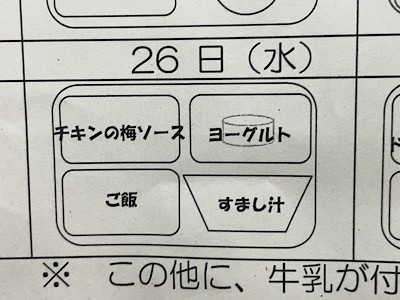 26日(水)
チキンの梅ソース
ヨーグルト
ご飯
すまし汁
※ この他に、牛乳が付